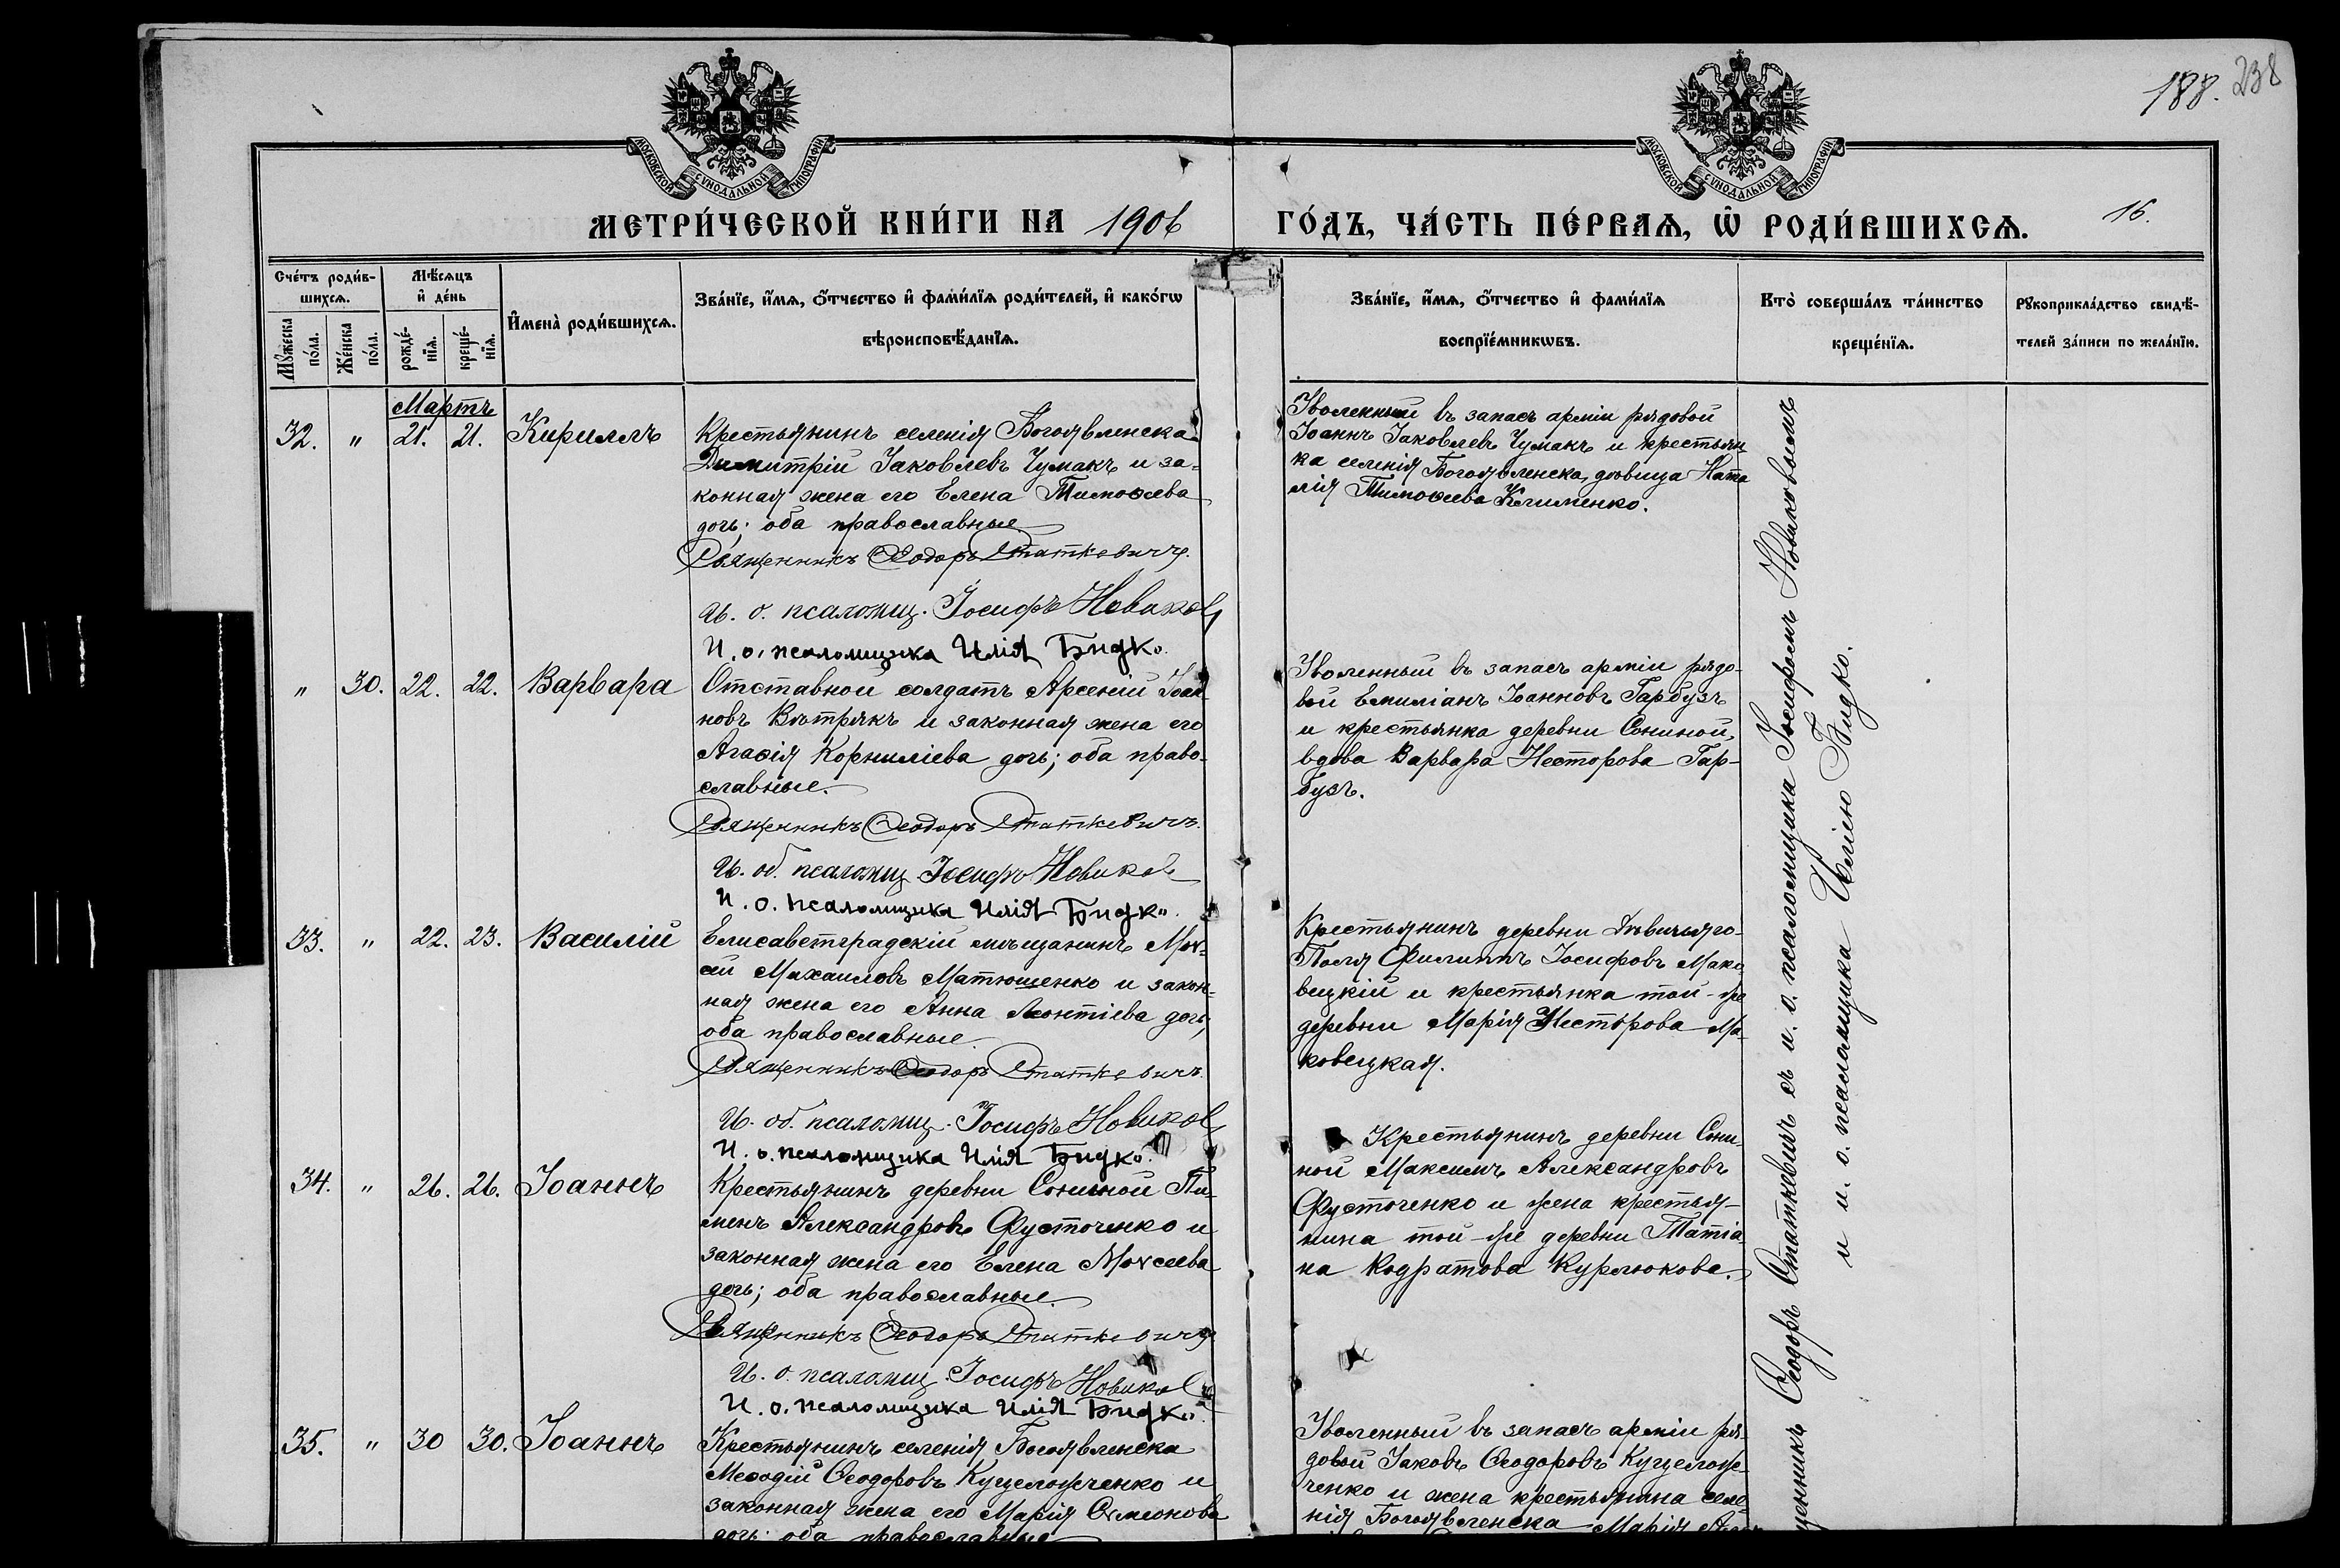 188. 238
МОСКОВСКОЙ СУНОДАЛЬНОЙ ТИПОГРАФІИ
МОСКОВСКОЙ СУНОДАЛЬНОЙ ТИПОГРАФІИ
МЕТРИ́ЧЕСКОЙ КНИ́ГИ НА 1906 ГО́ДЪ, ЧА́СТЬ ПЕ́РВАѦ, Ѡ҆ РОДИ́ВШИХСѦ. 16.
Сче́тъ роди́в-
шихсѧ.
Мꙋ́жеска по́ла.
Же́нска по́ла.
Мѣ́сѧцъ
и҆ де́нь
рожде́-
нїѧ.
креще́-
нїѧ.
И҆мена̀ роди́вшихсѧ.
Зва́нїе, и҆́мѧ, ѻ҆́тчество и҆ фами́лїѧ роди́телей, и҆ како́гѡ
вѣроисповѣ́данїѧ.
Зва́нїе, и҆́мѧ, ѻ҆́тчество и҆ фами́лїѧ
воспрїе́мникѡвъ.
Кто̀ соверша́лъ та́инство
креще́нїѧ.
Рꙋкоприкла́дство свидѣ́-
телей за́писи по жела́нїю.
Мартъ
32. " 21. 21. Кириллъ
Крестьянинъ селенія Богоявленска
Димитрій Іаковлевъ Чумакъ и за-
конная жена его Елена Тимоѳеева
дочь; оба православные
Священникъ Ѳеодоръ Статкевичъ.
И. о. псаломщ. Іосифъ Новиковъ
И. о. псаломщика Илія Бидко.
Уволенный въ запасъ арміи рядовой
Іоаннъ Іаковлевъ Чумакъ и крестьян
ка селенія Богоявленска, дѣвица Ната
лія Тимоѳеева Клименко.
" 30. 22. 22. Варвара
Отставной солдатъ Арсеній Іоан-
новъ Вѣтрякъ и законная жена его
Агаѳія Корниліева дочь; оба право-
славные.
Священникъ Ѳеодоръ Статкевичъ.
И. об. псаломщ Іосифъ Новиков
И. о. псаломщика Илія Бидко.
Уволенный въ запасъ арміи рядо-
вой Емиліанъ Іоанновъ Гарбузъ
и крестьянка деревни Сониной,
вдова Варвара Несторова Гар-
бузъ.
33. " 22. 23. Василій
Елисаветградскій мѣщанинъ Моѵ-
сей Михаиловъ Матюшенко и закон-
ная жена его Анна Леонтіева дочь,
оба православные.
Священникъ Ѳеодоръ Статкевичъ.
И. об. псаломщ. Іосифъ Новиковъ
И. о. псаломщика Илія Бидко.
Крестьянинъ деревни Дѣвичьяго-
Поля Филиппъ Іосифовъ Мако-
вецкій и крестьянка той-же
деревни Марія Несторова Ма-
ковецкая.
34. " 26. 26. Іоаннъ
Крестьянинъ деревни Сониной Пи-
менъ Александровъ Фусточенко и
законная жена его Елена Моѵсеева
дочь; оба православные.
Священникъ Ѳеодоръ Статкевичъ
И. о. псаломщ. Іосифъ Новиков
И. о. псаломщика Илія Бидко.
Крестьянинъ деревни Сони-
ной Максимъ Александровъ
Фусточенко и жена крестья-
нина той-же деревни Татіа-
на Кодратова Курлюкова.
35. " 30 30. Іоаннъ
Крестьянинъ селенія Богоявленска
Меѳодій Ѳеодоровъ Куцеложченко и
законная жена его Марія Сѵмеонова
дочь; оба православные
Уволенный въ запасъ арміи ря-
довой Іаковъ Ѳеодоровъ Куцелож-
ченко и жена крестьянина селе-
нія Богоявленска Марія
щенникъ Ѳеодоръ Статкевичъ съ и. о. псаломщика Іосифомъ Новиковымъ
и и. о. псаломщика Иліею Бидко.